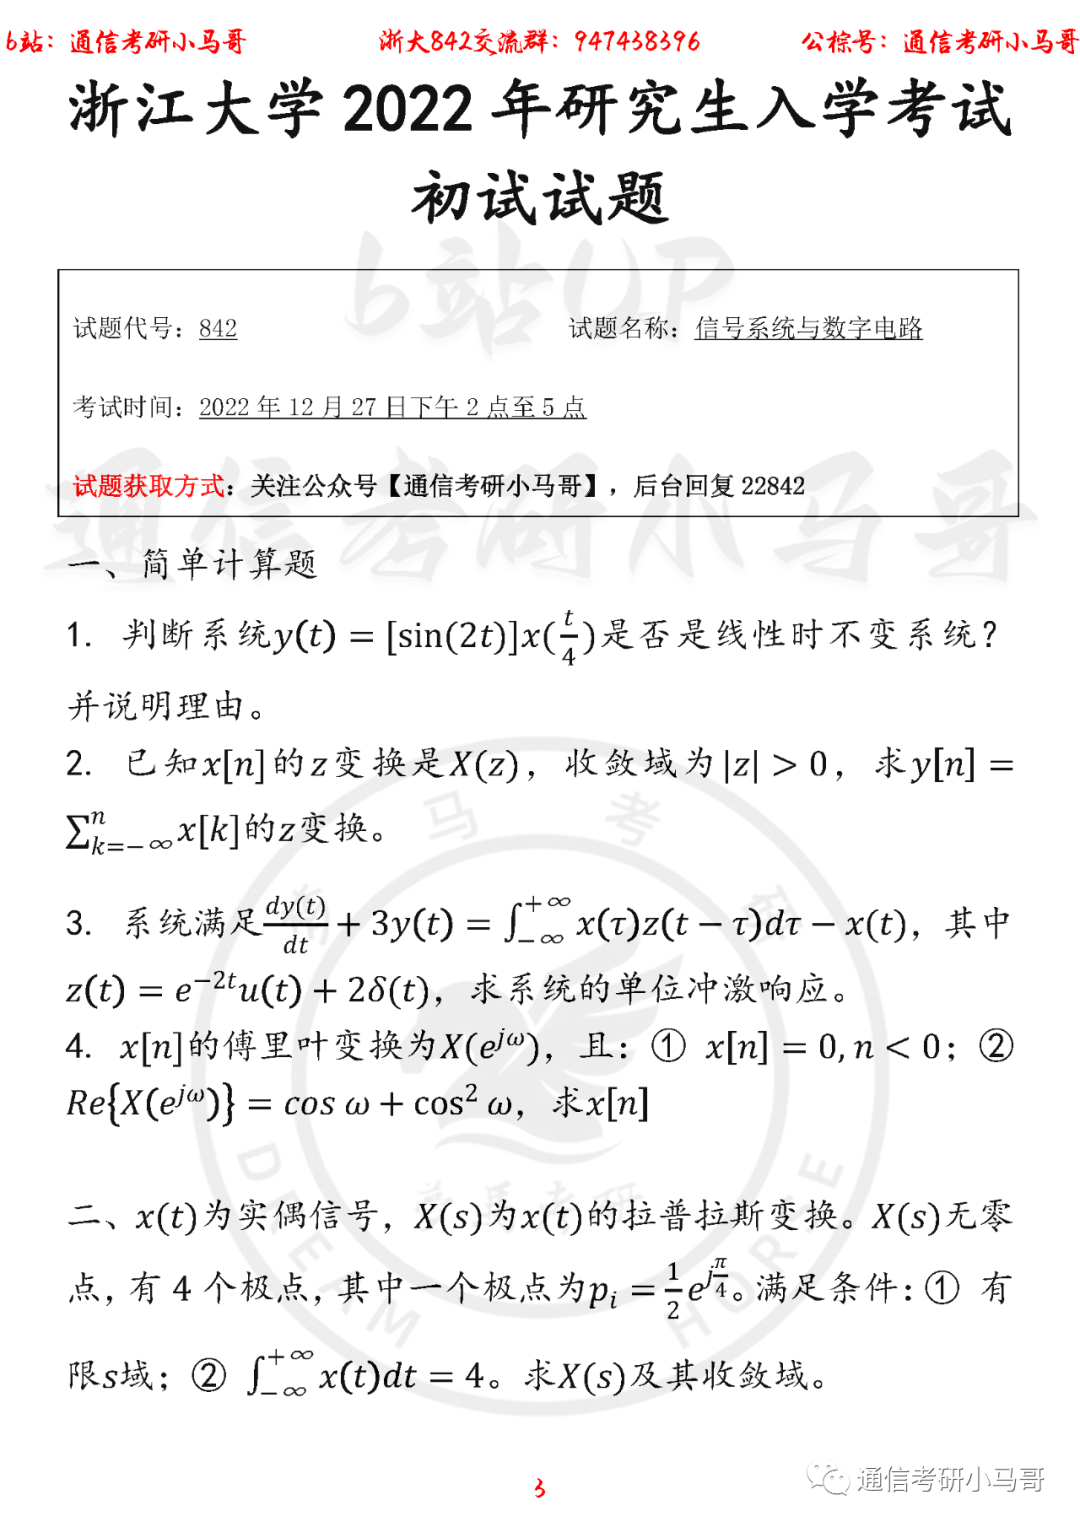 b站：通信考研小马哥 浙大842交流群：947438396 公棕号：通信考研小马哥
浙江大学 2022 年研究生入学考试
初试试题
b站UP
试题代号：842 试题名称：信号系统与数字电路
考试时间：2022 年 12 月 27 日下午 2 点至 5 点
试题获取方式：关注公众号【通信考研小马哥】，后台回复 22842
通信考研小马哥
一、简单计算题
1. 判断系统y(t) = [sin(2t)]x(t/4)是否是线性时不变系统？
并说明理由。
2. 已知x[n]的z变换是X(z)，收敛域为|z| > 0，求y[n] =
∑_{k=−∞}^{n} x[k]的z变换。
3. 系统满足dy(t)/dt + 3y(t) = ∫_{−∞}^{+∞} x(τ)z(t − τ)dτ − x(t)，其中
z(t) = e^{−2t}u(t) + 2δ(t)，求系统的单位冲激响应。
4. x[n]的傅里叶变换为X(e^{jω})，且：① x[n] = 0, n < 0；②
Re{X(e^{jω})} = cos ω + cos² ω，求x[n]
二、x(t)为实偶信号，X(s)为x(t)的拉普拉斯变换。X(s)无零
点，有 4 个极点，其中一个极点为p_i = 1/2 e^{jπ/4}。满足条件：① 有
限s域；② ∫_{−∞}^{+∞} x(t)dt = 4。求X(s)及其收敛域。
DREAM HORSE
3
通信考研小马哥